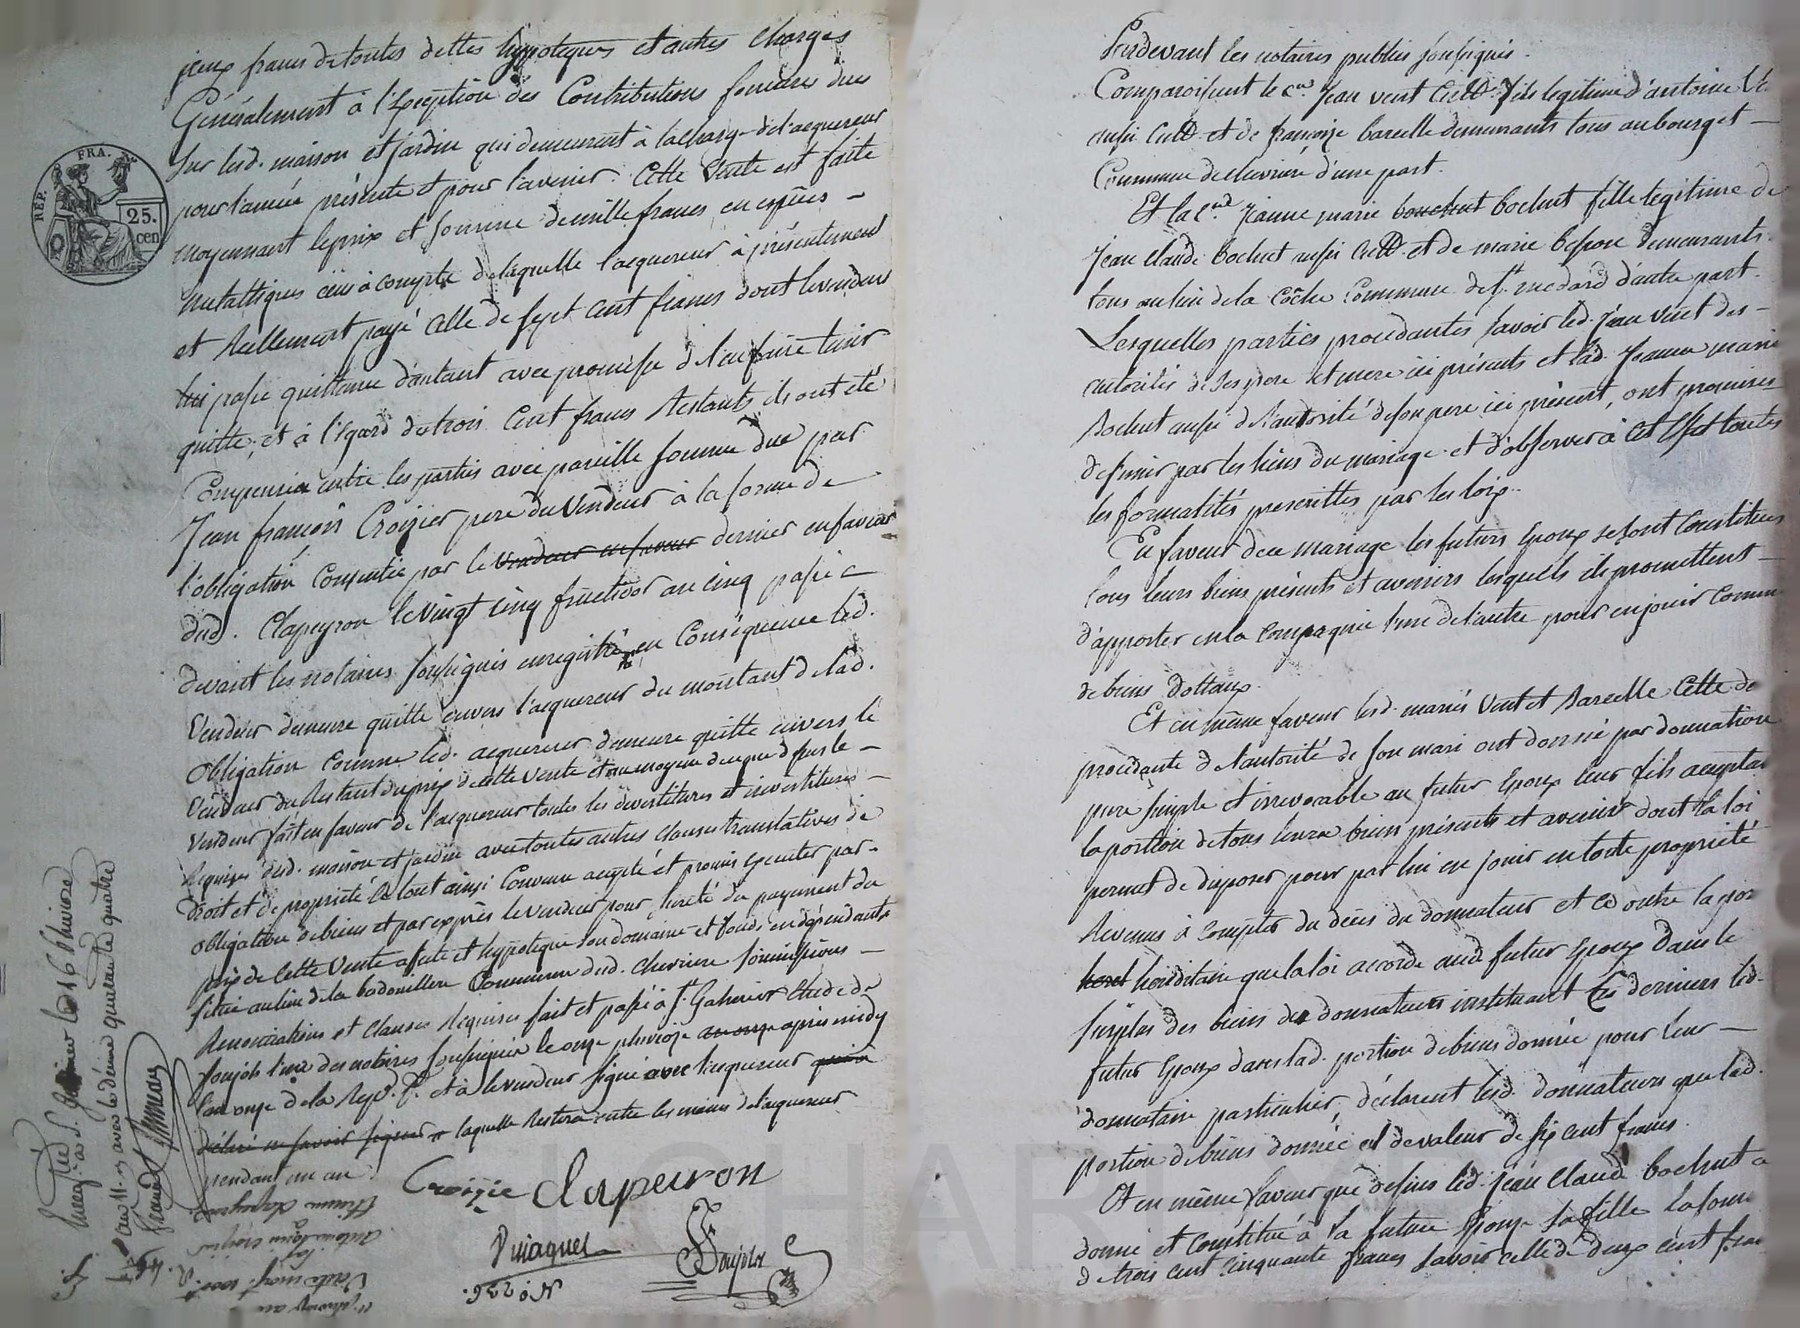 jceux francs de toutes dettes hypoteques et autres charges
Généralement à l'Exception des Contributions foncieres dues
Sur lesd. maison et jardin qui demeurent à la charge de l'acquereur
pour l'année présente et pour l'avenir. Cette Vente est faite
moyennant le prix et somme de mille francs en espèces –
metalliques à compte de laquelle l'acquereur à présentement
et Réellement payé celle de Sept cent francs dont le vendeur
lui passe quittance d'autant avec promesse de l'en faire tenir
quitte, et à l'égard de trois Cent francs Restants ils ont été
Compensés entre les parties avec pareille somme due par
Jean françois Croizier pere du Vendeur à la forme de
l'obligation Consentie par le vendeur en faveur dernier en faveur
dud. Clapeyron le Vingt cinq fructidor an cinq passé
devant les notaires soussignés enregistré, en Conséquence led.
Vendeur demeure quitte envers l'acquereur du montant de lad.
Obligation comme led. acquereur demeure quitte envers le
Vendeur du Restant du prix de cette Vente et au moyen de ce que dessus le –
Vendeur fait en faveur de l'acquereur toutes les devestitures et investitures –
Requises desd. maison et jardin avec toutes autres clauses translatives de
droit et de propriété le tout ainsi Convenu accepté et promis Executer par –
obligation de biens et par exprès le vendeur pour sureté du payement du
prix de Cette Vente affecte et hypoteque son domaine et fonds en dépendants
situé au lieu de la badouillere Commune dud. Chevriere Soumissions –
Renonciations et Clauses Requises fait et passé à St Galmier Etude de
Soujols l'un des notaires soussignés le onze pluviose an onze après midy
l'an onze de la Rep. f. et à le vendeur signé avec l'acquereur
déclaré ne savoir signer laquelle Restera entre les mains de l'acquereur
pendant un an.
Croizie Clapeiron
Puiaquet Soujols
No 226.
REP. FRA.
25.
cen
Enregistré à S. Galmier le 16 Pluviose
an 11.
Pardevant les notaires publics soussignés.
Comparoissent le Cen. Jean vent Cultr. fils legitime d'antoine
aussi Cultr. et de françoise bareille demeurants tous au bourg et –
Commune de chevriere d'une part.
Et la Cne. Jeanne marie bouchut bochut fille legitime de
Jean Claude bochut aussi Cultr. et de marie besson demeurants
tous au lieu de la Côche Commune de St. medard d'autre part.
Lesquelles parties procedantes savoir led. Jean vent des –
autorités de Ses pere et mere ici présents et lad. Jeanne marie
bochut aussi de l'autorité de son pere ici présent, ont promis
de s'unir par les liens du mariage et d'observer à cet effet toutes
les formalités prescrittes par les loix.
En faveur de ce mariage les futurs Epoux se sont Constitués
tous leurs biens présents et avenirs lesquels ils promettent –
d'apporter en la Compagnie l'un de l'autre pour en jouir comme
de biens dottaux.
Et en même faveur lesd. mariés Vent et Bareille Cette de
procedante de l'autorité de son mari ont donné par donnation
pure simple et irrevocable au futur Epoux leur fils acceptant
la portion de tous leurs biens présents et avenir dont la loi
permet de disposer pour par lui en jouir en toute propriété
Revenus à Compter du décès du donnateur et ce outre la por
hered héréditaire que la loi accorde aud futur Epoux dans le
surplus des biens des donnateurs instituant Ces derniers led.
futur Epoux dans lad. portion de biens donnée pour leur –
donnataire particulier, déclarent lesd. donnateurs que lad.
portion de biens donnée est de valeur de six cent francs.
Et en même faveur que dessus led. jean Claude bochut a
donné et constitué à la future Epouse sa fille la som
de trois cent cinquante francs savoir celle de deux cent fran